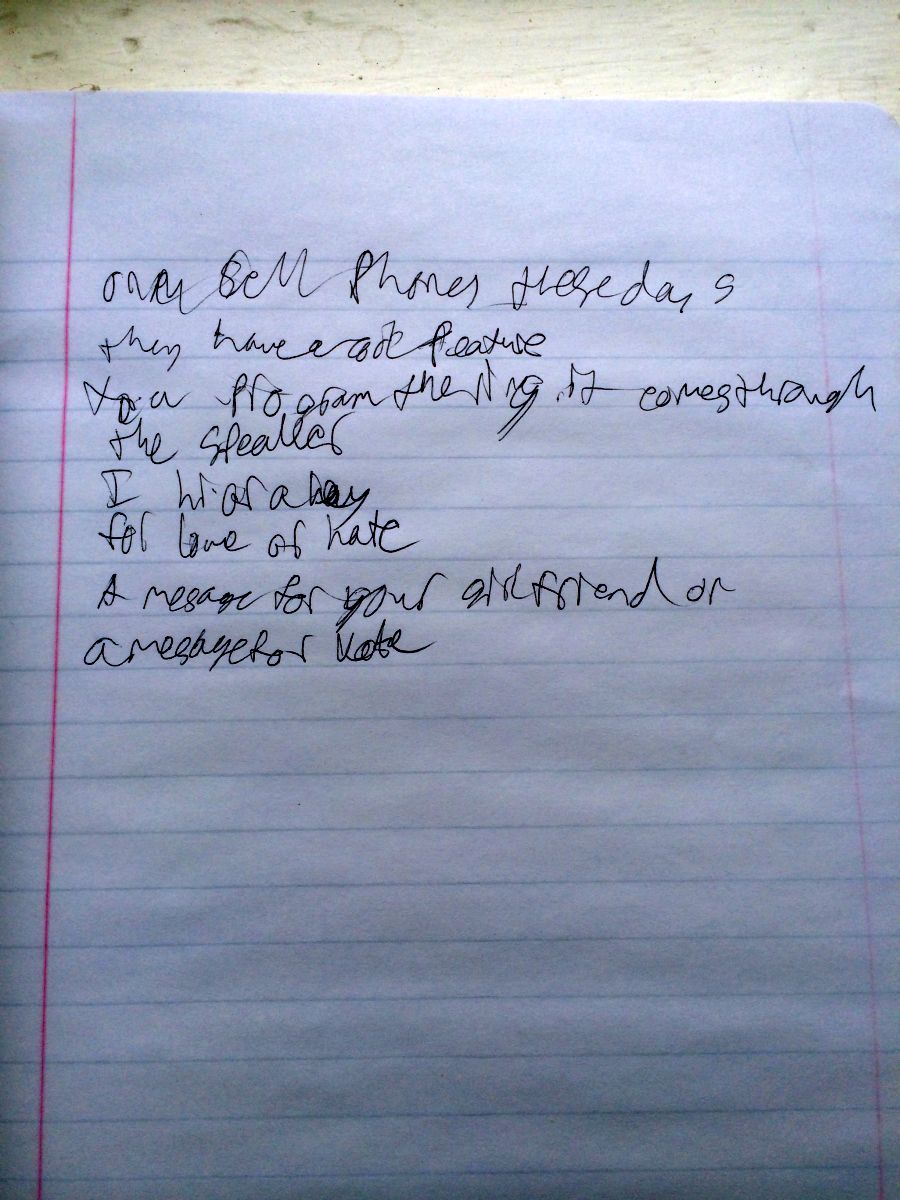 only Cell Phones these days
they have a cool feature
You program the ring it comes through
the speaker
I hear a bay
for love of Kate
A mesage for your girlfriend or
a mesage for Kate